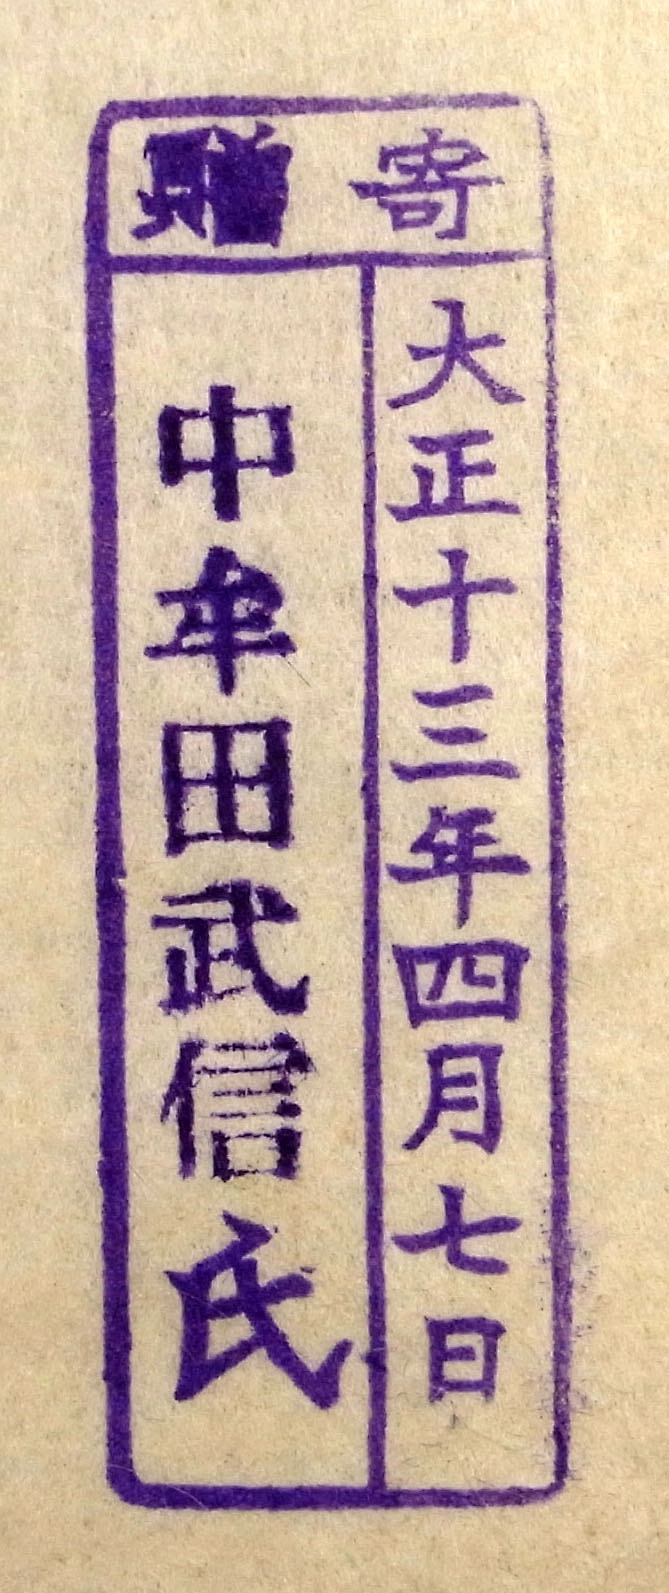 寄贈
大正十三年四月七日
中牟田武信氏